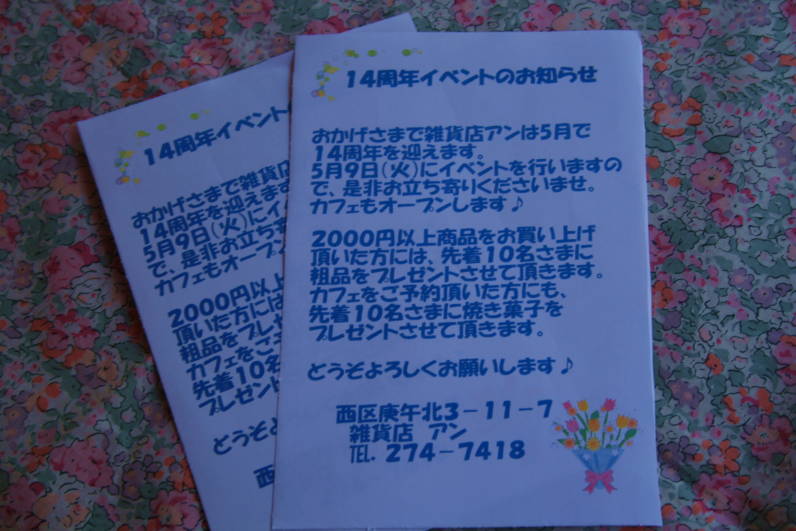 14周年イベントのお知らせ
おかげさまで雑貨店アンは5月で
14周年を迎えます。
5月9日(火)にイベントを行いますの
で、是非お立ち寄りくださいませ。
カフェもオープンします♪
2000円以上商品をお買い上げ
頂いた方には、先着10名さまに
粗品をプレゼントさせて頂きます。
カフェをご予約頂いた方にも、
先着10名さまに焼き菓子を
プレゼントさせて頂きます。
どうぞよろしくお願いします♪
西区庚午北3-11-7
雑貨店 アン
TEL. 274-7418
14周年イベント
おかげさまで雑貨店
14周年を迎えます
5月9日(火)にイ
で、是非お立ち寄
カフェもオープン
2000円以上
頂いた方には
粗品をプレゼ
カフェをご予
先着10名
プレゼント
どうぞよ
西